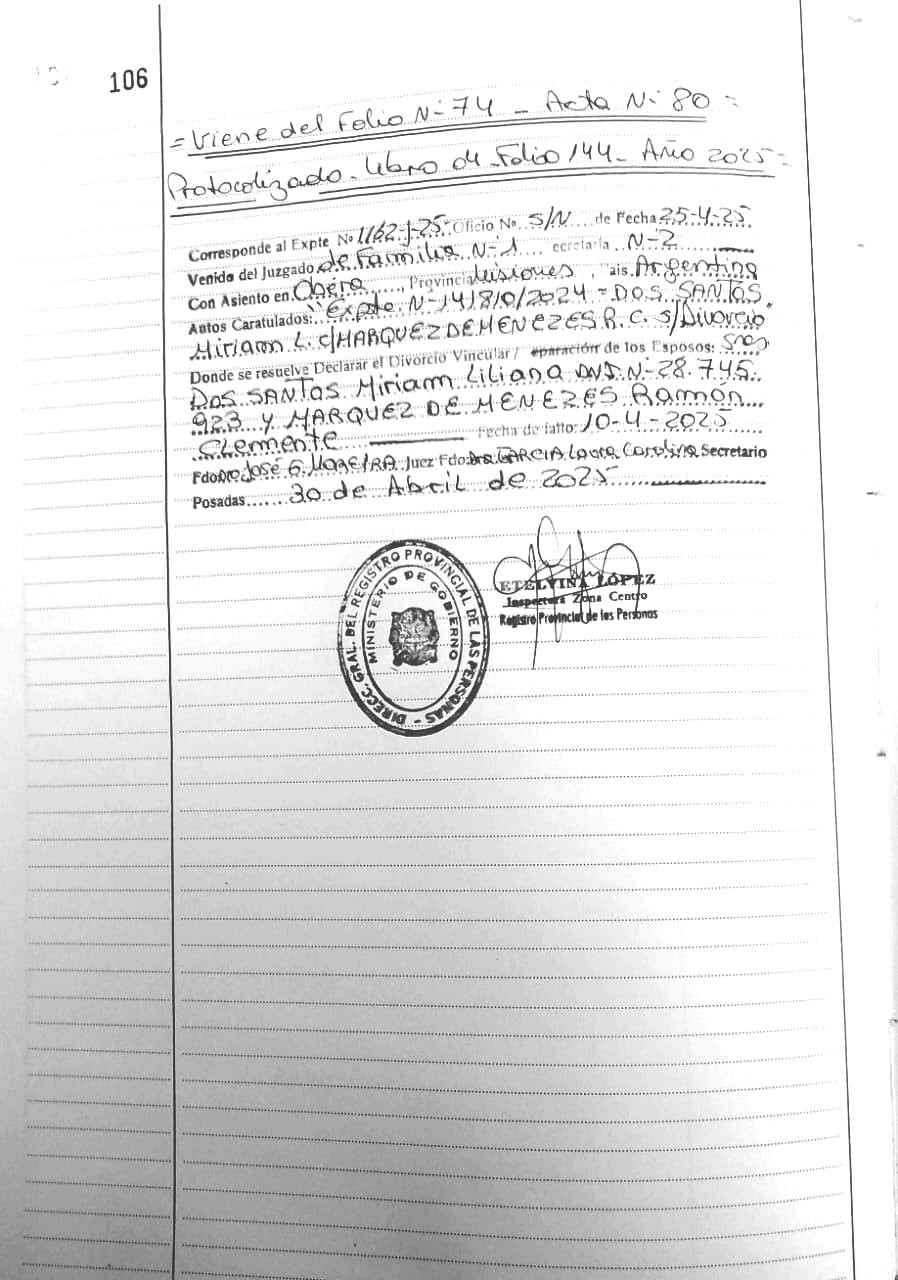 106
= Viene del Folio N-74 - Acta N- 80 =
Protocolizado - Libro 04 - Folio 144 - Año 2025 =
Corresponde al Expte No 1162-J-25. Oficio No S/N de Fecha 25-4-25
Venido del Juzgado de Familia N-1 ecretaria N-2
Con Asiento en Oberá, Provincia Misiones, ais Argentina
Autos Caratulados: "Expte. N-141810/2024 = DOS SANTOS
Miriam L. c/MARQUEZ DE MENEZES R. C. s/Divorcio
Donde se resuelve Declarar el Divorcio Vincular / eparación de los Esposos: Sres
DOS SANTOS Miriam Liliana DNI N-28.745.
923 y MARQUEZ DE MENEZES Ramón
Clemente Fecha de fallo: 10-4-2025
Fdo José G. Juez Fdo Dra GARCIA Laura Carolina Secretario
Posadas 30 de Abril de 2025
DIRECC. GRAL. DEL REGISTRO PROVINCIAL DE LAS PERSONAS -
MINISTERIO DE GOBIERNO
ETELVINA LOPEZ
Inspectora Zona Centro
Registro Provincial de las Personas